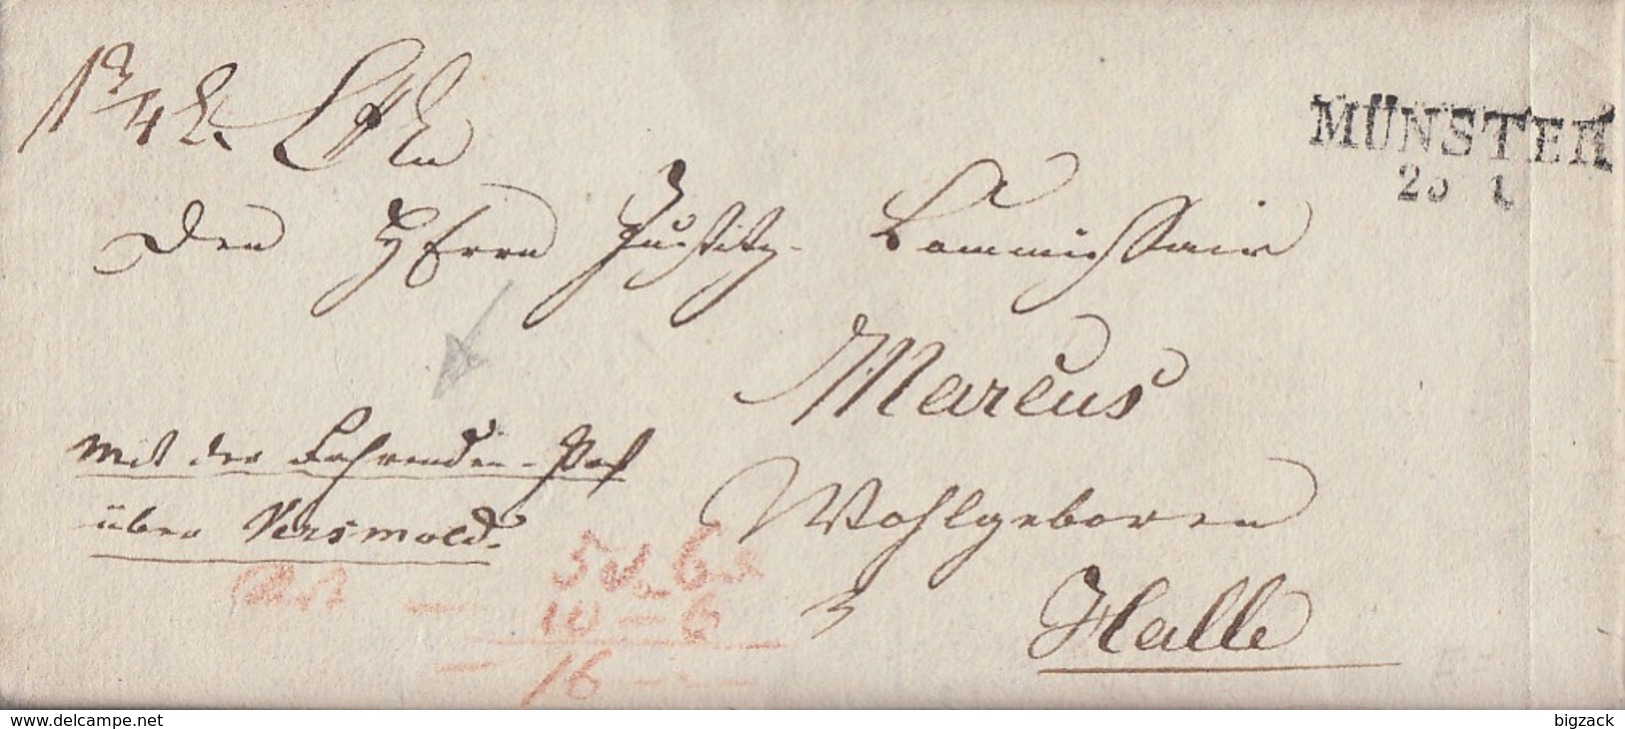 1 3/4 L.
MÜNSTER
25 1
Den HErrn Justitz-Commissair
Marcus
Wohlgeboren
Halle
mit der Fahrenden-Post
über Versmold.
5 6
10 – 6
16 –
www.delcampe.net
bigzack